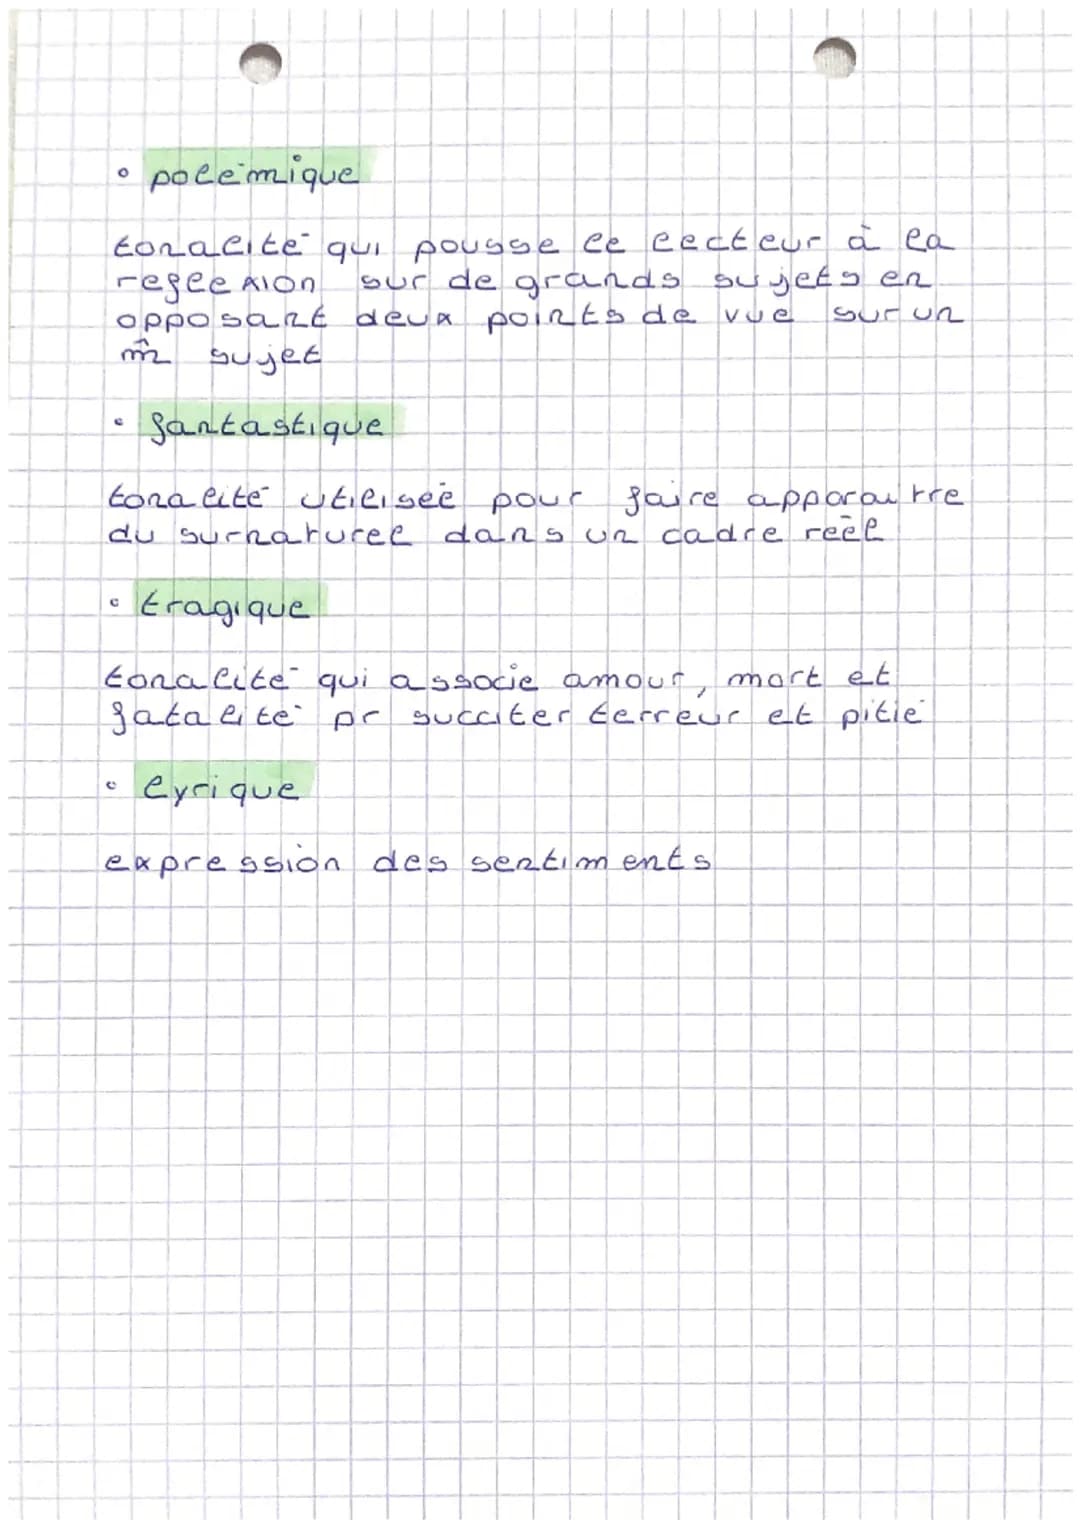 • polémique
tonalité qui pousse le lecteur à la
reflexion sur de grands sujets en
opposant deux points de vue sur un
m̂ sujet
• fantastique
tonalité utilisée pour faire apparaitre
du surnaturel dans un cadre réel
• tragique
tonalité qui associe amour, mort et
fatalité pr susciter terreur et pitié
• lyrique
expression des sentiments